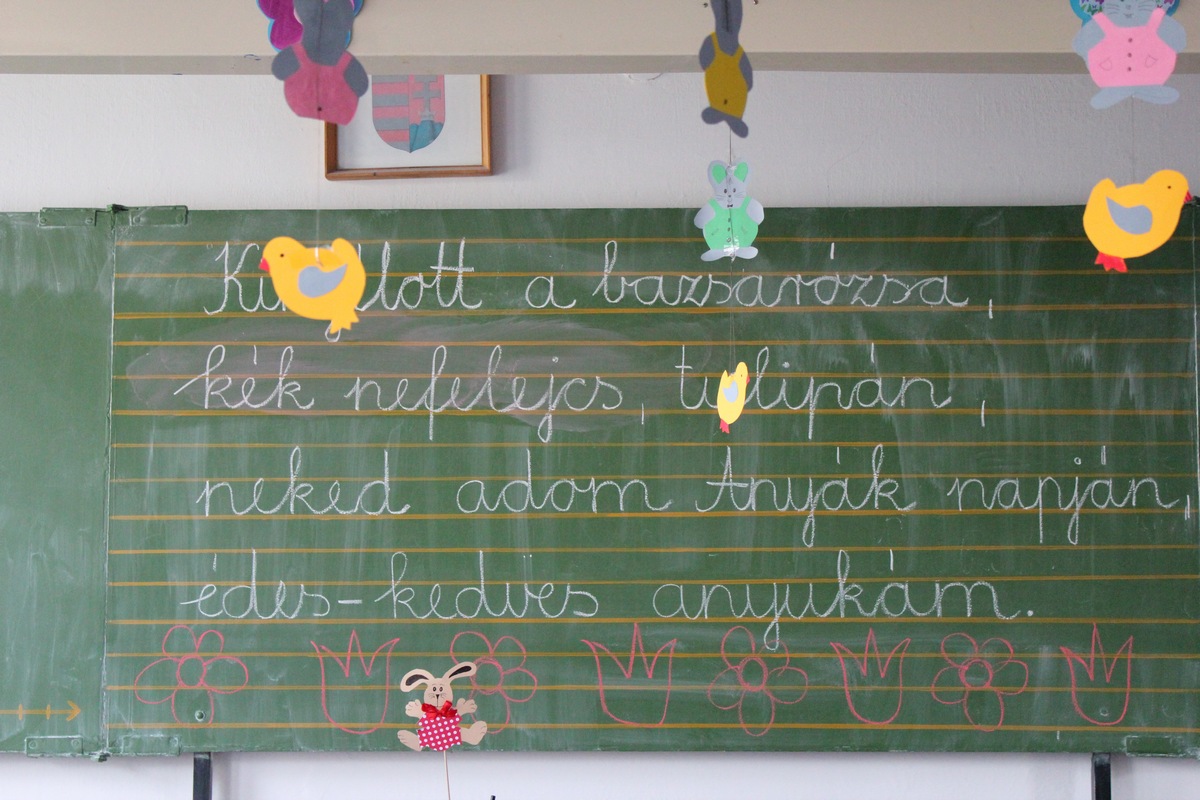 a bazsarózsa,
kék nefelejcs, tulipán,
neked adom Anyák napján,
édes-kedves anyukám.